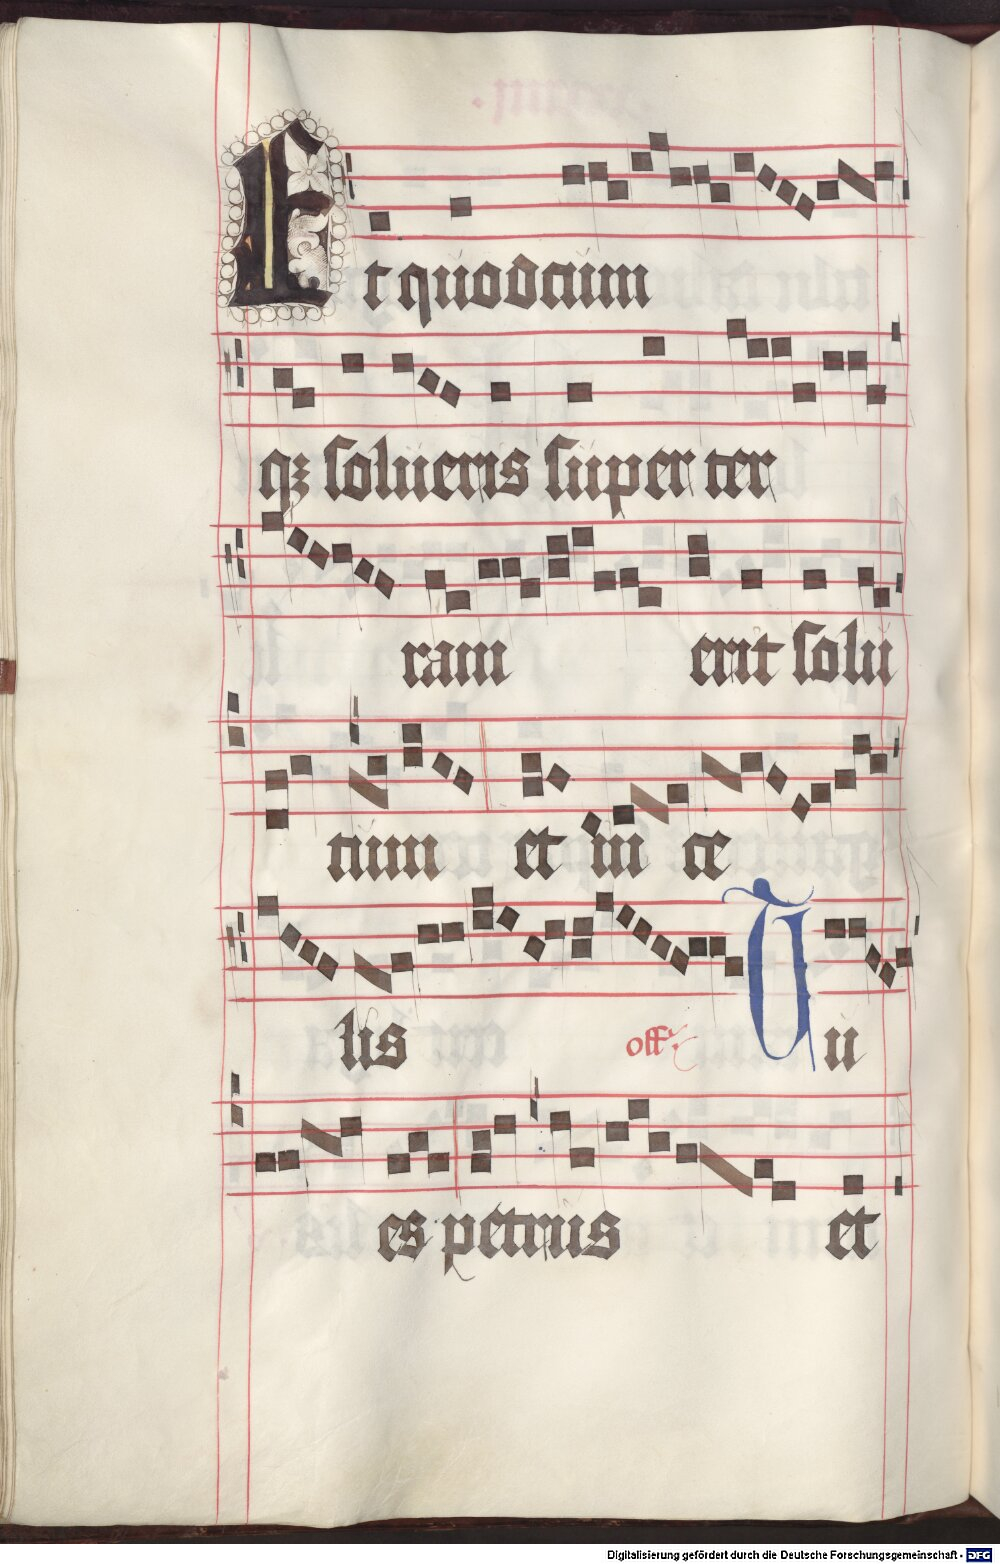 Et quodcum
qꝫ solueris super ter
ram erit solu
tum et in ce
lis off. Tu
es petrus et
Digitalisierung gefördert durch die Deutsche Forschungsgemeinschaft - DFG